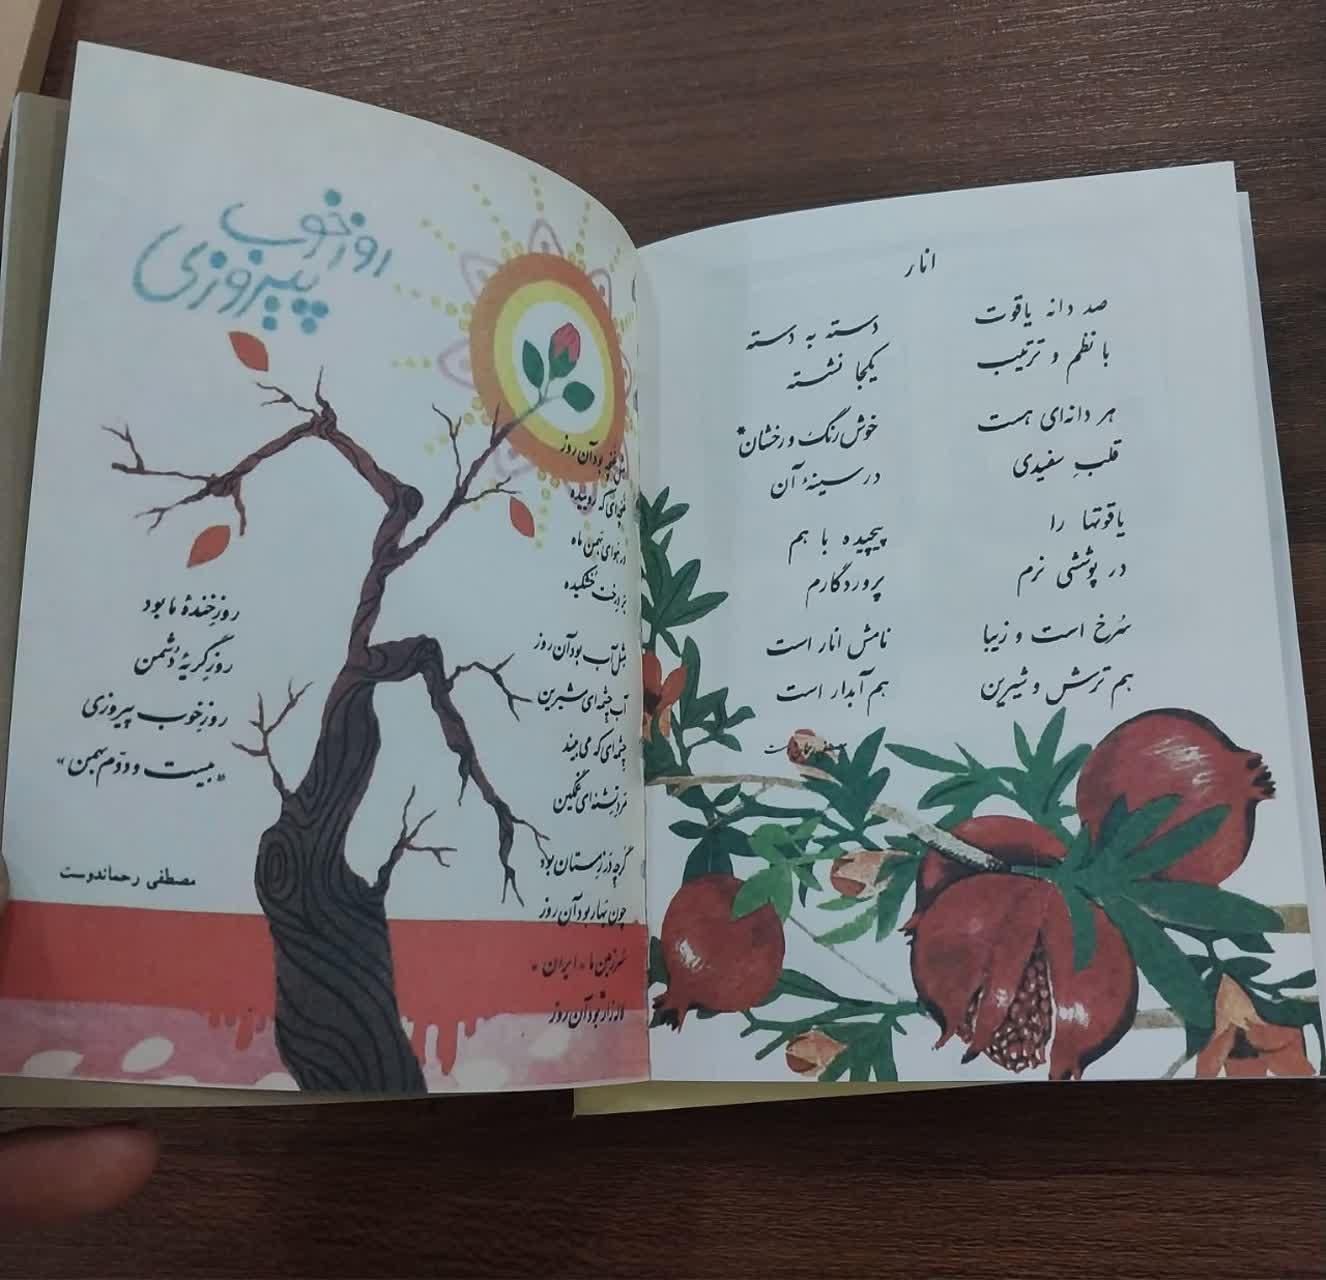 انار
صد دانه یاقوت
دسته به دسته
با نظم و ترتیب
یکجا نشسته
هر دانه‌ای هست
خوش رنگ و رخشان*
قلبِ سفیدی
در سینهٔ آن
یاقوتها را
پیچیده با هم
در پوششی نرم
پروردگارم
سُرخ است و زیبا
نامش انار است
هم ترش و شیرین
هم آبدار است
روز خوب
پیروزی
مثل غنچه بود آن روز
غنچه‌ای که روییده
در هوای بهمن ماه
بر درخت خشکیده
مثل آب بود آن روز
آب چشمه‌ای شیرین
چشمه‌ای که می‌بیند
مرد تشنه‌ای غمگین
گرچه در زمستان بود
چون بهار بود آن روز
سرزمین ما «ایران»
لاله‌زار بود آن روز
روز خندهٔ ما بود
روز گریهٔ دُشمن
روز خوب پیروزی
«بیست و دوّم بهمن»
مصطفی رحماندوست